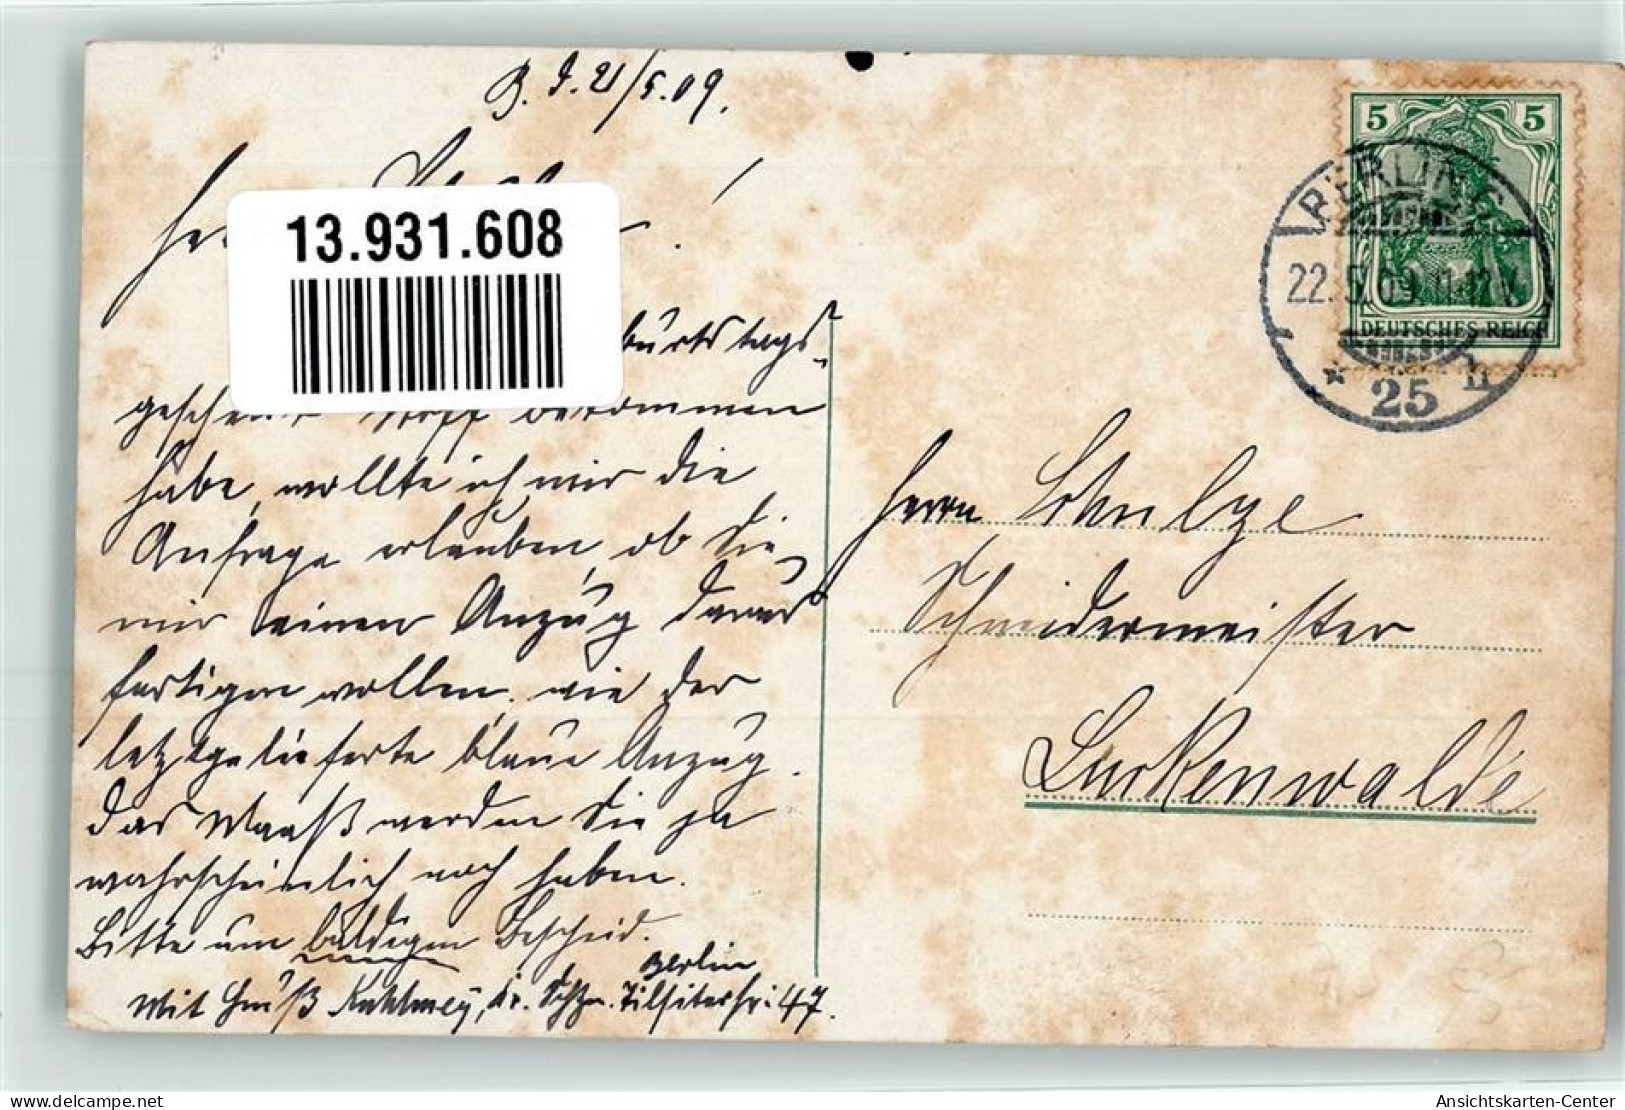 B. d. 21/5.09.
!
13.931.608
burtstags-
geschenk Stoff bekommen
habe, wollte ich mir die
Anfrage erlauben, ob Sie
mir einen Anzug daraus
fertigen wollen, wie der
letztgelieferte blaue Anzug.
Das Maaß werden Sie ja
wahrscheinlich noch haben.
Bitte um baldigen Bescheid.
Mit Gruß Kuhlmey, Berlin
Tilsiterstr: 47.
5 5
DEUTSCHES REICH
BERLIN
22.5.09.11-12V
* 25 n
Herrn Schulze
Schneidermeister
Luckenwalde
delcampe.net
youpis111
Ansichtskarten-Center